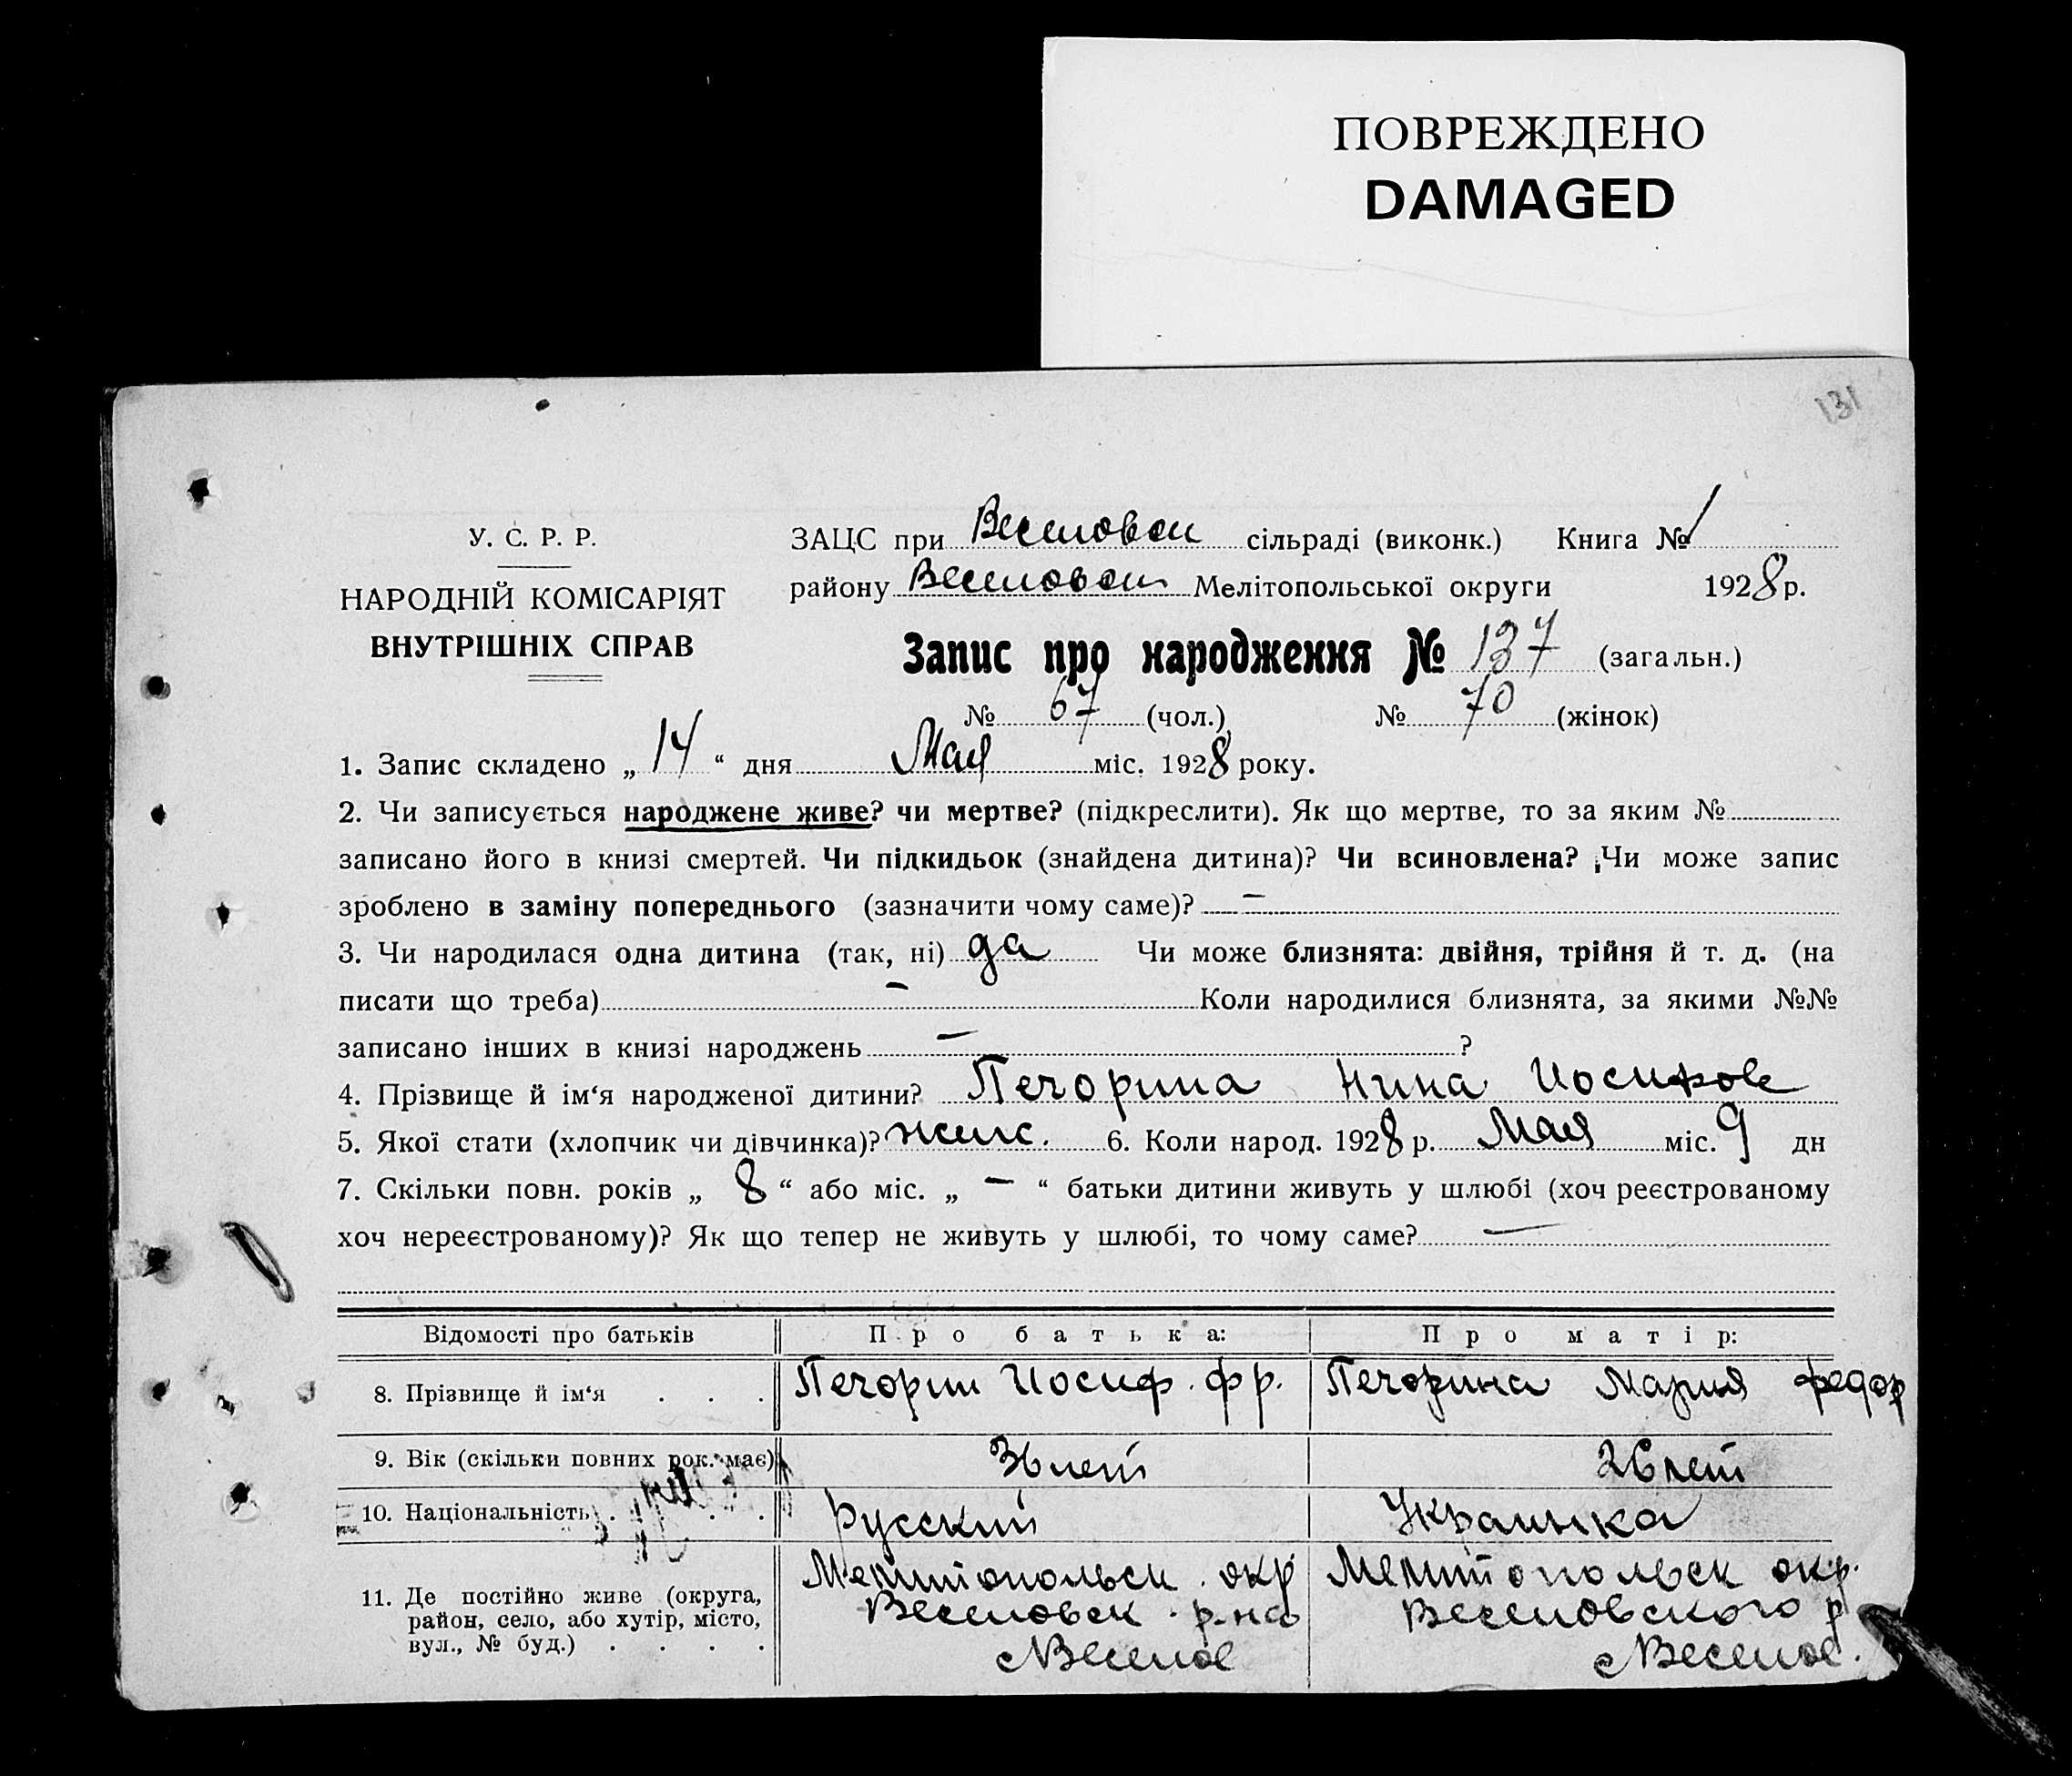 ПОВРЕЖДЕНО
DAMAGED
131
У. С. Р. Р.
НАРОДНІЙ КОМІСАРІЯТ
ВНУТРІШНІХ СПРАВ
ЗАЦС при Веселовск сільраді (виконк.) Книга № 1
району Веселовск Мелітопольської округи 1928 р.
Запис про народження № 137 (загальн.)
№ 67 (чол.) № 70 (жінок)
1. Запис складено „ 14 “ дня Мая міс. 1928 року.
2. Чи записується народжене живе? чи мертве? (підкреслити). Як що мертве, то за яким №
записано його в книзі смертей. Чи підкидьок (знайдена дитина)? Чи всиновлена? Чи може запис
зроблено в заміну попереднього (зазначити чому саме)? —
3. Чи народилася одна дитина (так, ні) да Чи може близнята: двійня, трійня й т. д. (на
писати що треба) — Коли народилися близнята, за якими №№
записано інших в книзі народжень — ?
4. Прізвище й ім‘я народженої дитини? Печорина Нина Иосифов
5. Якої стати (хлопчик чи дівчинка)? женс. 6. Коли народ. 1928 р. Мая міс. 9 дн
7. Скільки повн. років „ 8 “ або міс. „ — “ батьки дитини живуть у шлюбі (хоч реєстрованому
хоч нереєстрованому)? Як що тепер не живуть у шлюбі, то чому саме? —
Відомості про батьків Про батька: Про матір:
8. Прізвище й ім‘я . . . Печорин Иосиф. фр. Печорина Мария федор
9. Вік (скільки повних рок. має) 36 лет 26 лет
10. Національність . . . . Русский Украинка
11. Де постійно живе (округа, район, село, або хутір, місто, вул., № буд.) . . . .
Мелитопольск. окр Веселовск. р-на с Веселое
Мелитопольск окр. Веселовского р с Веселое.